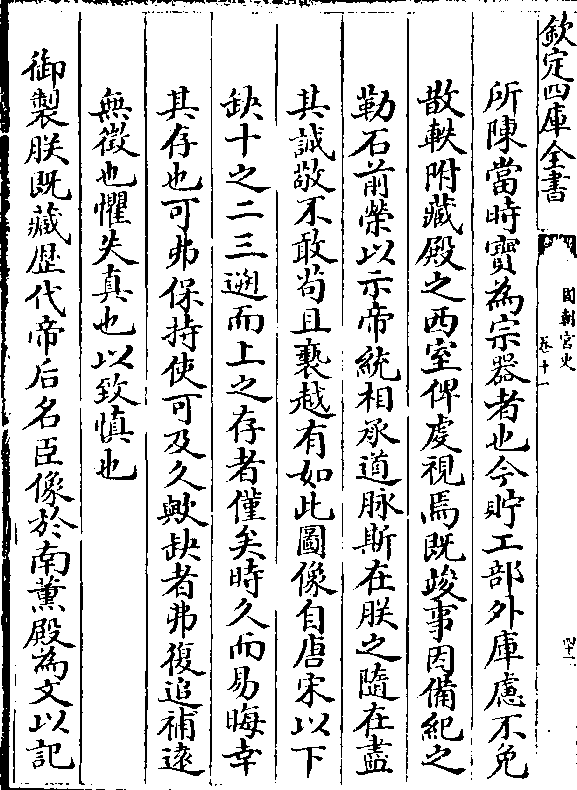 欽定四庫全書
國朝宮史
卷十一
所陳當時寶為宗器者也今貯工部外庫慮不免
散軼附藏殿之西室俾虔視焉既竣事因備紀之
勒石前榮以示帝統相承道脉斯在朕之隨在盡
其誠敬不敢苟且褻越有如此圖像自唐宋以下
缺十之二三遡而上之存者僅矣時久而易晦幸
其存也可弗保持使可及久歟缺者弗復追補逺
無徴也懼失真也以致慎也
御製朕既藏歴代帝后名臣像於南薫殿為文以記